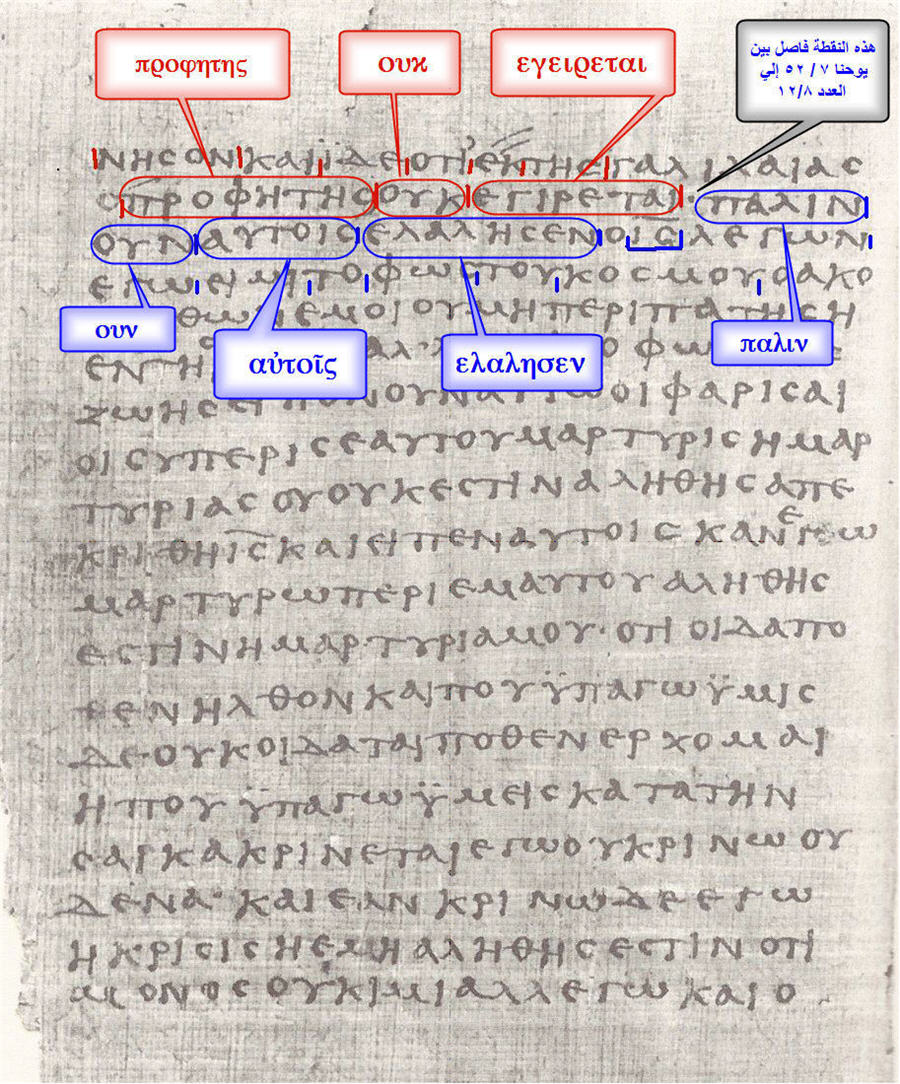 προφητης
ουκ
εγειρεται
هذه النقطة فاصل بين
يوحنا ٧ / ٥٢ إلي
العدد ١٢/٨
ΝΗϹΟΝΚΑΙΪΔΕΟΤΙΕΚΤΗϹΓΑΛΙΛΑΙΑϹ
ΟΠΡΟΦΗΤΗϹΟΥΚΕΓΙΡΕΤΑΙ·ΠΑΛΙΝ
ΟΥΝΑΥΤΟΙϹΕΛΑΛΗϹΕΝΟΙϹΛΕΓΩΝ
ΕΓΩΕΙΜΙΤΟΦΩϹΤΟΥΚΟϹΜΟΥΟΑΚΟ
ΘΩΝΕΜΟΙΟΥΜΗΠΕΡΙΠΑΤΗϹΗ
ουν
αὐτοῖς
ελαλησεν
παλιν
ΕΝΤΗ ΑΛ Ο ΦΩ Ϲ
ΖΩΗϹ ΟΥΝΑΥΤΩΟΙΦΑΡΙϹΑΙ
ΟΙϹΥΠΕΡΙϹΕΑΥΤΟΥΜΑΡΤΥΡΙϹΗΜΑΡ
ΤΥΡΙΑϹΟΥΟΥΚΕϹΤΙΝΑΛΗΘΗϹΑΠΕ
ΚΡΙΘΗΙϹΚΑΙΕΙΠΕΝΑΥΤΟΙϹΚΑΝΕΓΩ
ΜΑΡΤΥΡΩΠΕΡΙΕΜΑΥΤΟΥΑΛΗΘΗϹ
ΕϹΤΙΝΗΜΑΡΤΥΡΙΑΜΟΥ·ΟΤΙΟΙΔΑΠΟ
ΘΕΝΗΛΘΟΝΚΑΙΠΟΥΫΠΑΓΩΫΜΙϹ
ΔΕΟΥΚΟΙΔΑΤΑΙΠΟΘΕΝΕΡΧΟΜΑΙ
ΗΠΟΥΫΠΑΓΩΫΜΕΙϹΚΑΤΑΤΗΝ
ϹΑΡΚΑΚΡΙΝΕΤΑΙΕΓΩΟΥΚΡΙΝΩΟΥ
ΔΕΝΑ·ΚΑΙΕΑΝΚΡΙΝΩΔΕΕΓΩ
ΗΚΡΙϹΙϹΗΕΜΗΑΛΗΘΗϹΕϹΤΙΝΟΤΙ
ΜΟΝΟϹΟΥΚΙΜΙΑΛΛΕΓΩΚΑΙΟ